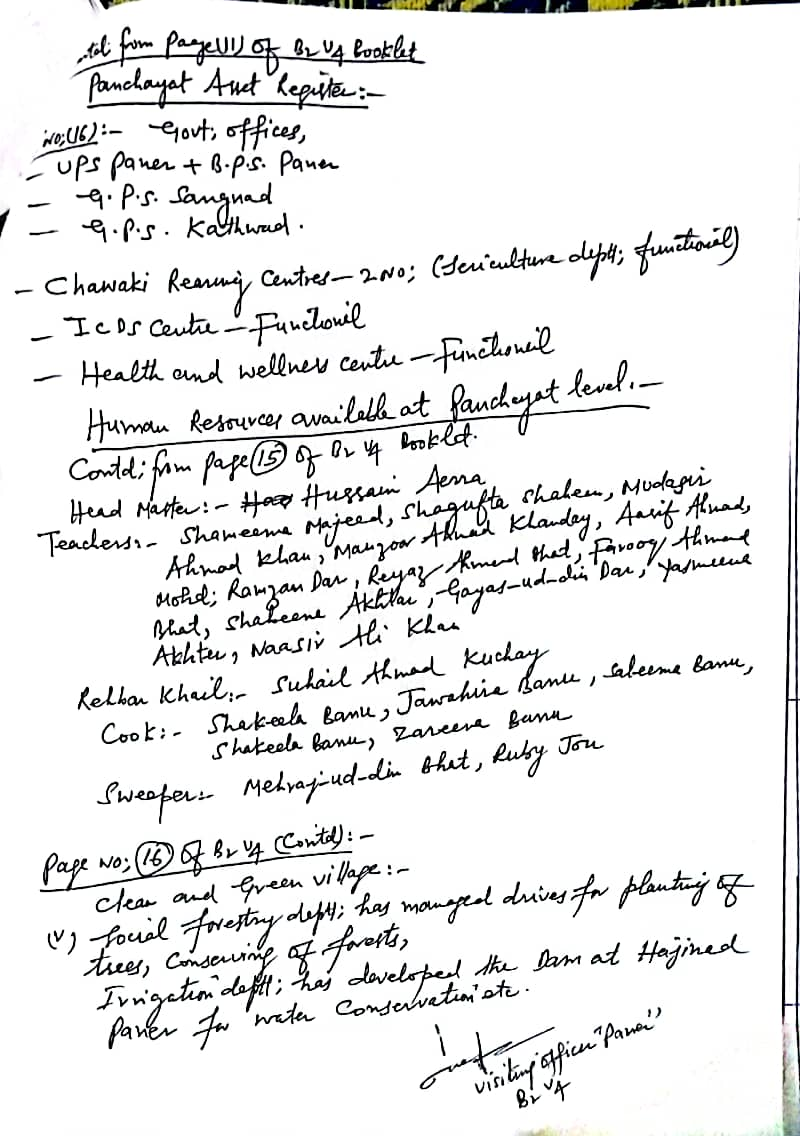 from Page VII) of B2V4 Booklet
Panchayat Asset Register:-
No;(16):- Govt; offices,
- UPS Paner + B.P.S. Paner
- G.P.S. Sangnad
- G.P.S. Kathwad.
- Chawaki Rearing Centres - 2 No; (Sericulture deptt; functional)
- ICDS Centre - Functional
- Health and wellness centre - Functional
Human Resources available at Panchayat level.-
Contd; from page (15) of B2V4 Booklet.
Head Master:- Hussain Aenra
Teachers:- Shameema Majeed, Shagufta Shaheen, Mudasir
Ahmad Khan, Manzoor Ahmad Khanday, Aasif Ahmad,
Mohd; Ramzan Dar, Reyaz Ahmad Bhat, Farooq Ahmad
Bhat, Shaheena Akhtar, Gayas-ud-din Dar, Yasmeena
Akhter, Naasir Ali Khan
Rehbar Khail:- Suhail Ahmad Kuchay
Cook:- Shakeela Banu, Jawahira Banu, Saleema Banu,
Shakeela Banu, Zareena Banu
Sweeper:- Mehraj-ud-din Bhat, Ruby Jan
Page No; (16) of B2V4 (Contd):-
Clean and Green village:-
(V) Social forestry deptt; has managed drives for planting of
trees, Conserving of forests,
Irrigation deptt; has developed the Dam at Hajinad
Paner for water Conservation etc.
visiting officer "Paner"
B2V4